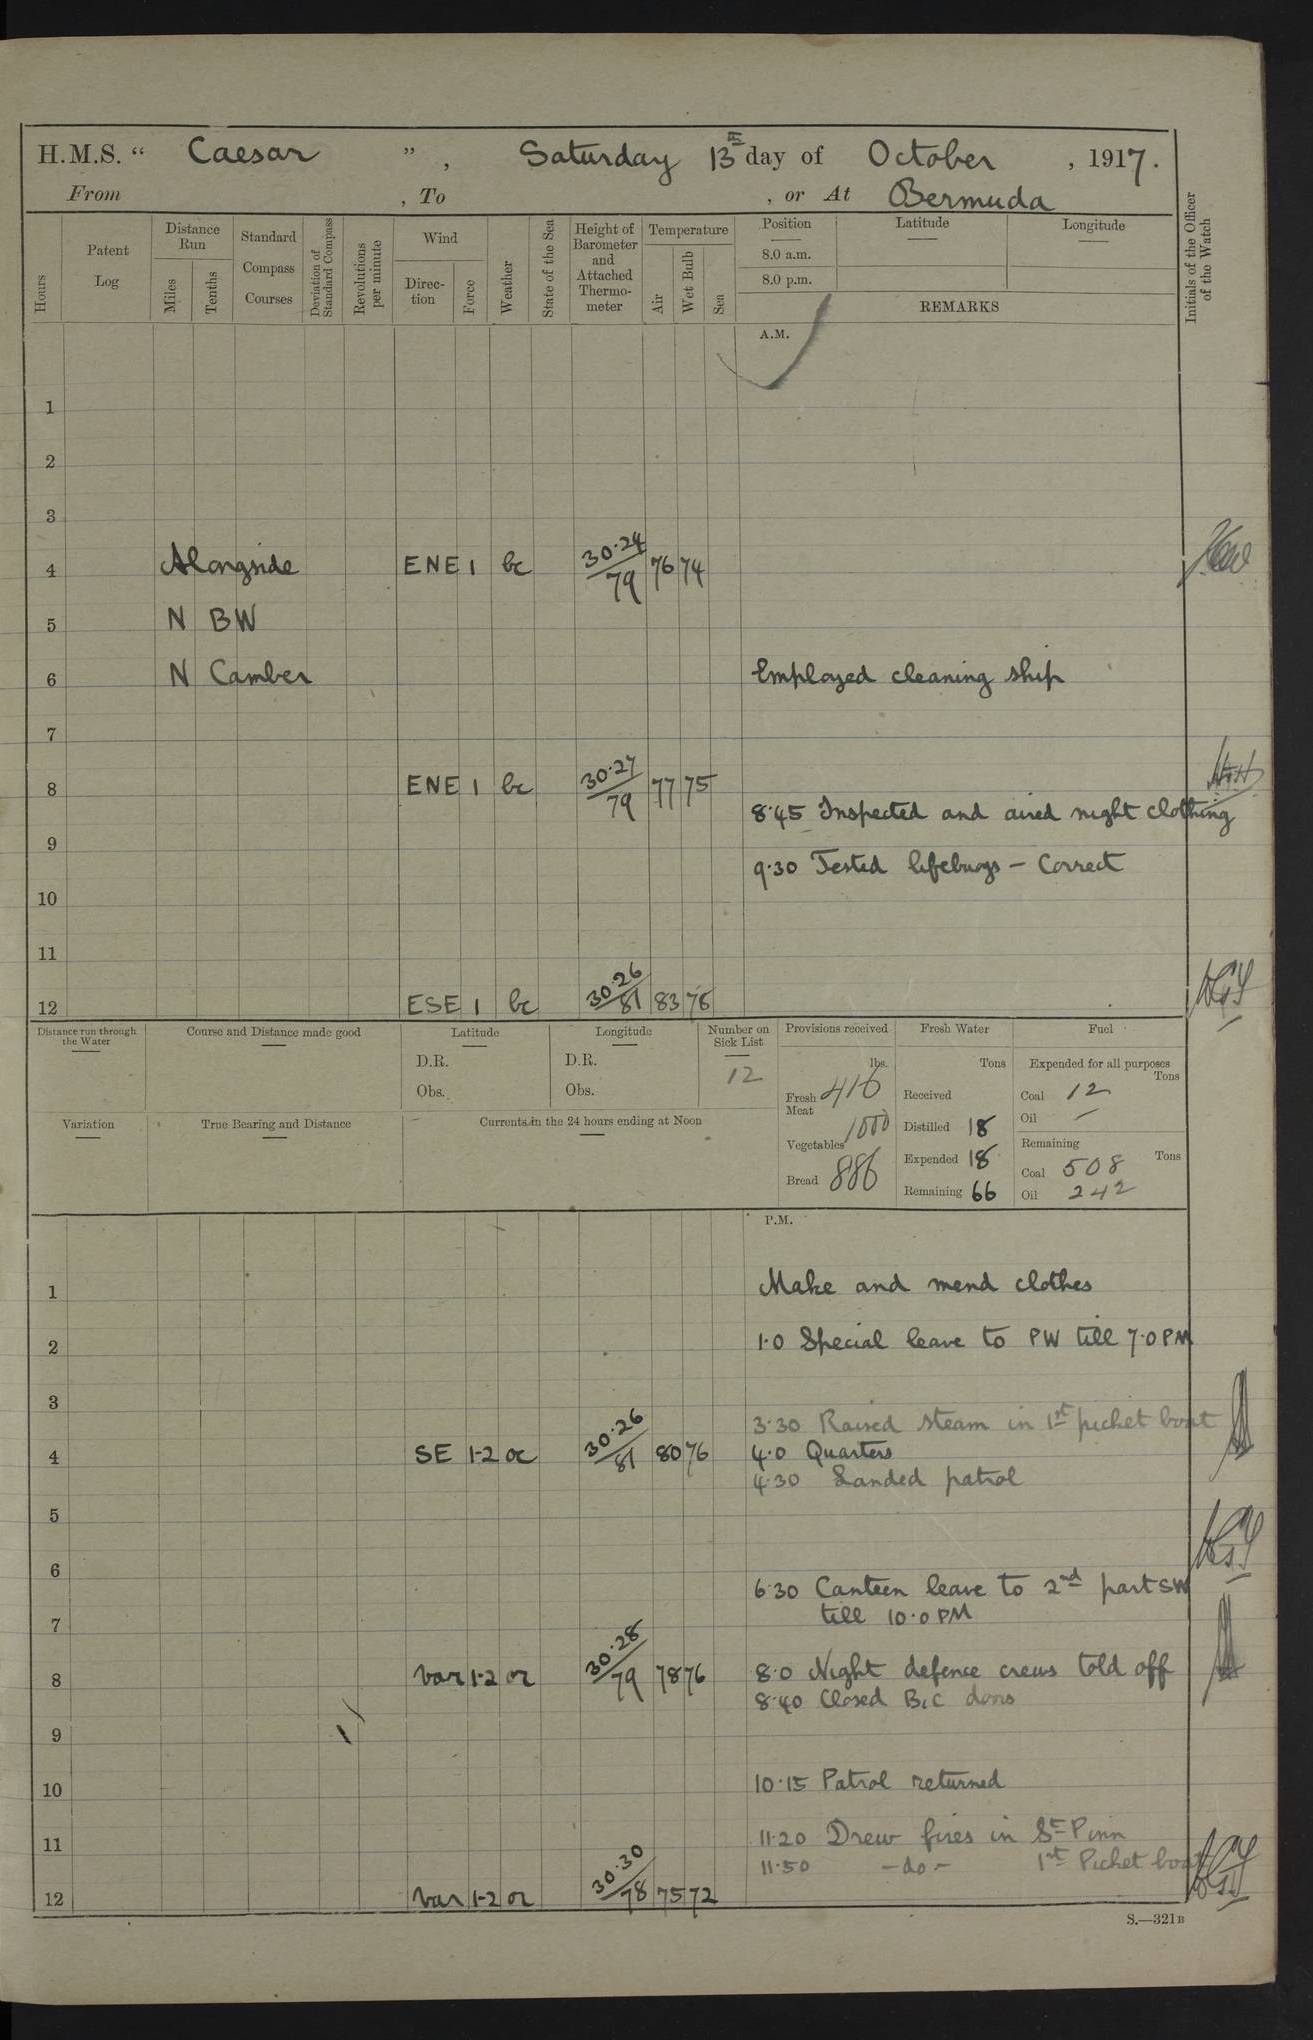 H.M.S. “ Caesar ” , Saturday 13th day of October , 1917.
From , To , or At Bermuda
Hours
Patent Log
Distance Run
Miles
Tenths
Standard Compass Courses
Deviation of Standard Compass
Revolutions per minute
Wind
Direction
Force
Weather
State of the Sea
Height of Barometer and Attached Thermometer
Temperature
Air
Wet Bulb
Sea
Position
8.0 a.m.
8.0 p.m.
Latitude
Longitude
REMARKS
Initials of the Officer of the Watch
A.M.
1
2
3
4 Alongside ENE 1 bc 30·24/79 76 74
5 N BW
6 N Camber Employed cleaning ship
7
8 ENE 1 bc 30·27/79 77 75
8·45 Inspected and aired night clothing
9
9·30 Tested lifebuoys – Correct
10
11
12 ESE 1 bc 30·26/81 83 78
Distance run through the Water
Course and Distance made good
Latitude
D.R.
Obs.
Longitude
D.R.
Obs.
Number on Sick List
12
Provisions received
lbs.
Fresh Meat 416
Vegetables 1000
Bread 886
Fresh Water
Tons
Received
Distilled 18
Expended 18
Remaining 66
Fuel
Expended for all purposes
Tons
Coal 12
Oil –
Remaining
Tons
Coal 508
Oil 242
Variation
True Bearing and Distance
Currents in the 24 hours ending at Noon
P.M.
1 Make and mend clothes
2 1·0 Special leave to PW till 7·0 PM
3
3·30 Raised steam in 1st picket boat
4 SE 1-2 oc 30·26/81 80 76 4·0 Quarters
4·30 Landed patrol
5
6
6·30 Canteen leave to 2nd part SW
till 10·0 PM
7
8 Var 1-2 or 30·28/79 78 76 8·0 Night defence crews told off
8·40 Closed B, C doors
9
10 10·15 Patrol returned
11 11·20 Drew fires in St. Pinn
11·50 –do– 1st Picket boat
12 Var 1-2 or 30·30/78 75 72
S.—321B